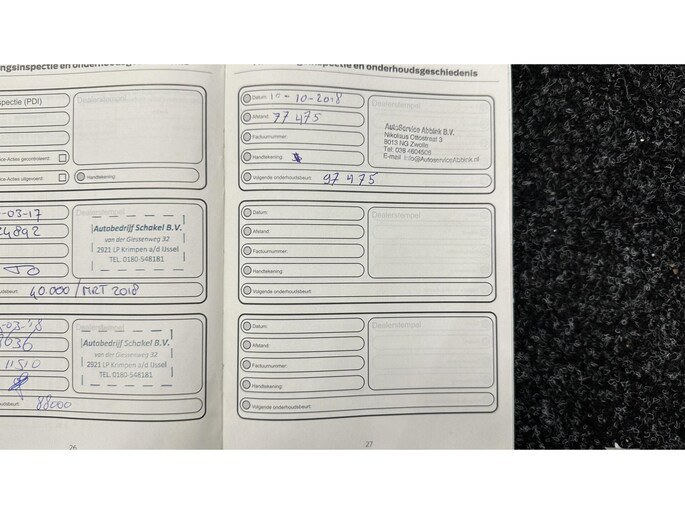 spectie (PDI)
ice-Acties gecontroleerd:
ice-Acties uitgevoerd:
Handtekening:
-03-17
Autobedrijf Schakel B.V.
van der Giessenweg 32
2921 LP Krimpen a/d IJssel
TEL. 0180-548181
40.000 / MRT 2018
-03-'18
Autobedrijf Schakel B.V.
van der Giessenweg 32
2921 LP Krimpen a/d IJssel
TEL. 0180-548181
11510
88000
26
inspectie en onderhoudsgeschiedenis
Datum: 10-10-2018
Dealerstempel
Afstand: 77 475
Factuurnummer:
Handtekening:
AutoService Abbink B.V.
Nikolaus Ottostraat 3
8013 NG Zwolle
Tel: 038 4604506
E-mail: info@AutoserviceAbbink.nl
Volgende onderhoudsbeurt: 97 475
Datum:
Dealerstempel
Afstand:
Factuurnummer:
Handtekening:
Volgende onderhoudsbeurt:
Datum:
Dealerstempel
Afstand:
Factuurnummer:
Handtekening:
Volgende onderhoudsbeurt:
27